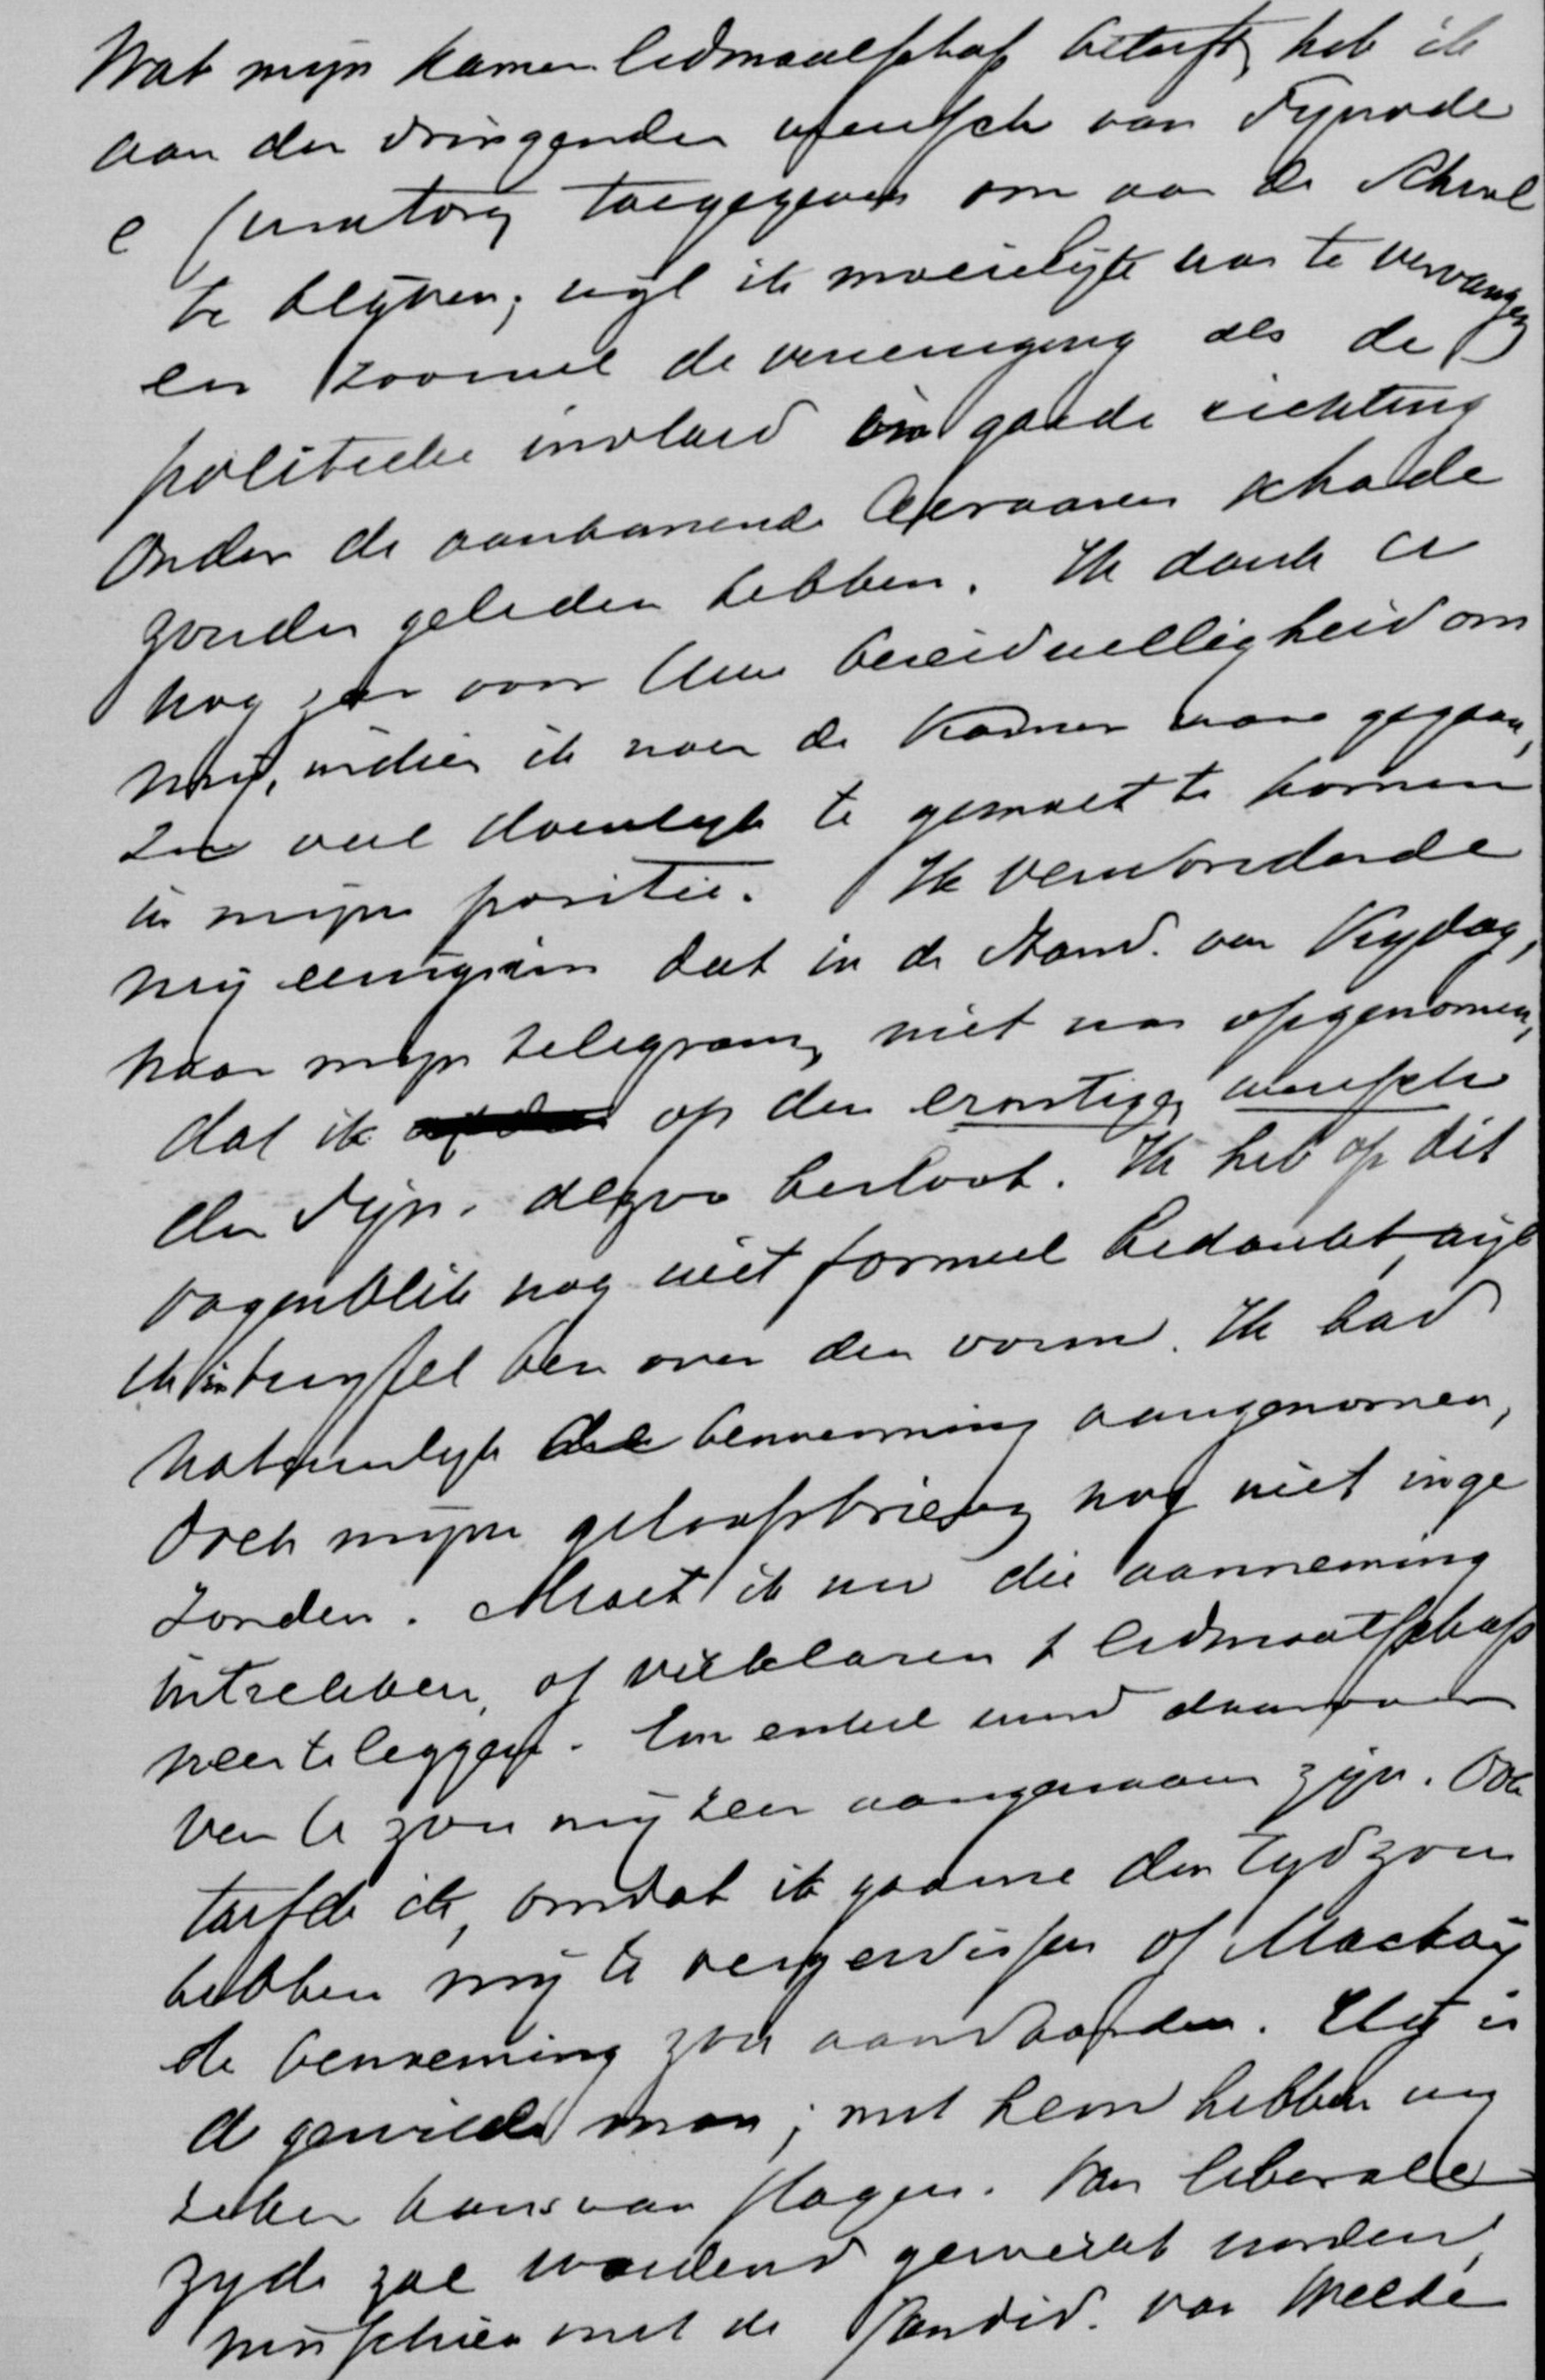 Wat mijn Kamerlidmaatschap betreft, heb ik
aan den dringenden wensch van Synode
e Curatoren toegegeven om aan de School
te blijven, wijl ik moeielijk was te vervangen
en zoowel de vereeniging als de
politieke invloed in goede richting
onder de aankomende Leeraaren schade
zouden geleden hebben. Ik dank U
nog zeer voor Uwe bereidwilligheid om
mij, indien ik naar de Kamer ware gegaan,
zoo veel doenlijk te gemoet te komen
in mijne positie. Ik verwonderde
mij eenigszins dat in de Stand. van Vrijdag,
naar mijn telegram, niet was opgenomen,
dat ik op den ernstigen wensch
der Syn. alzoo besloot. Ik heb op dit
oogenblik nog niet formeel bedankt, wijl
ik in twijfel ben over den vorm. Ik had
natuurlijk de benoeming aangenomen,
doch mijne geloofsbrieven nog niet inge
zonden. Moet ik nu die aanneming
intrekken, of verklaren t lidmaatschap
neer te leggen. Een enkel woord daarover
van U zou mij zeer aangenaam zijn. Ook
toefde ik, omdat ik gaarne den tijd zou
hebben mij te vergewissen of Mackay
de benoeming zou aanvaarden. Hij is
de gewilde man; met hem hebben wij
zeker kans van slagen. Van liberale
zijde zal woedend gewerkt worden,
misschien met de Candid. van